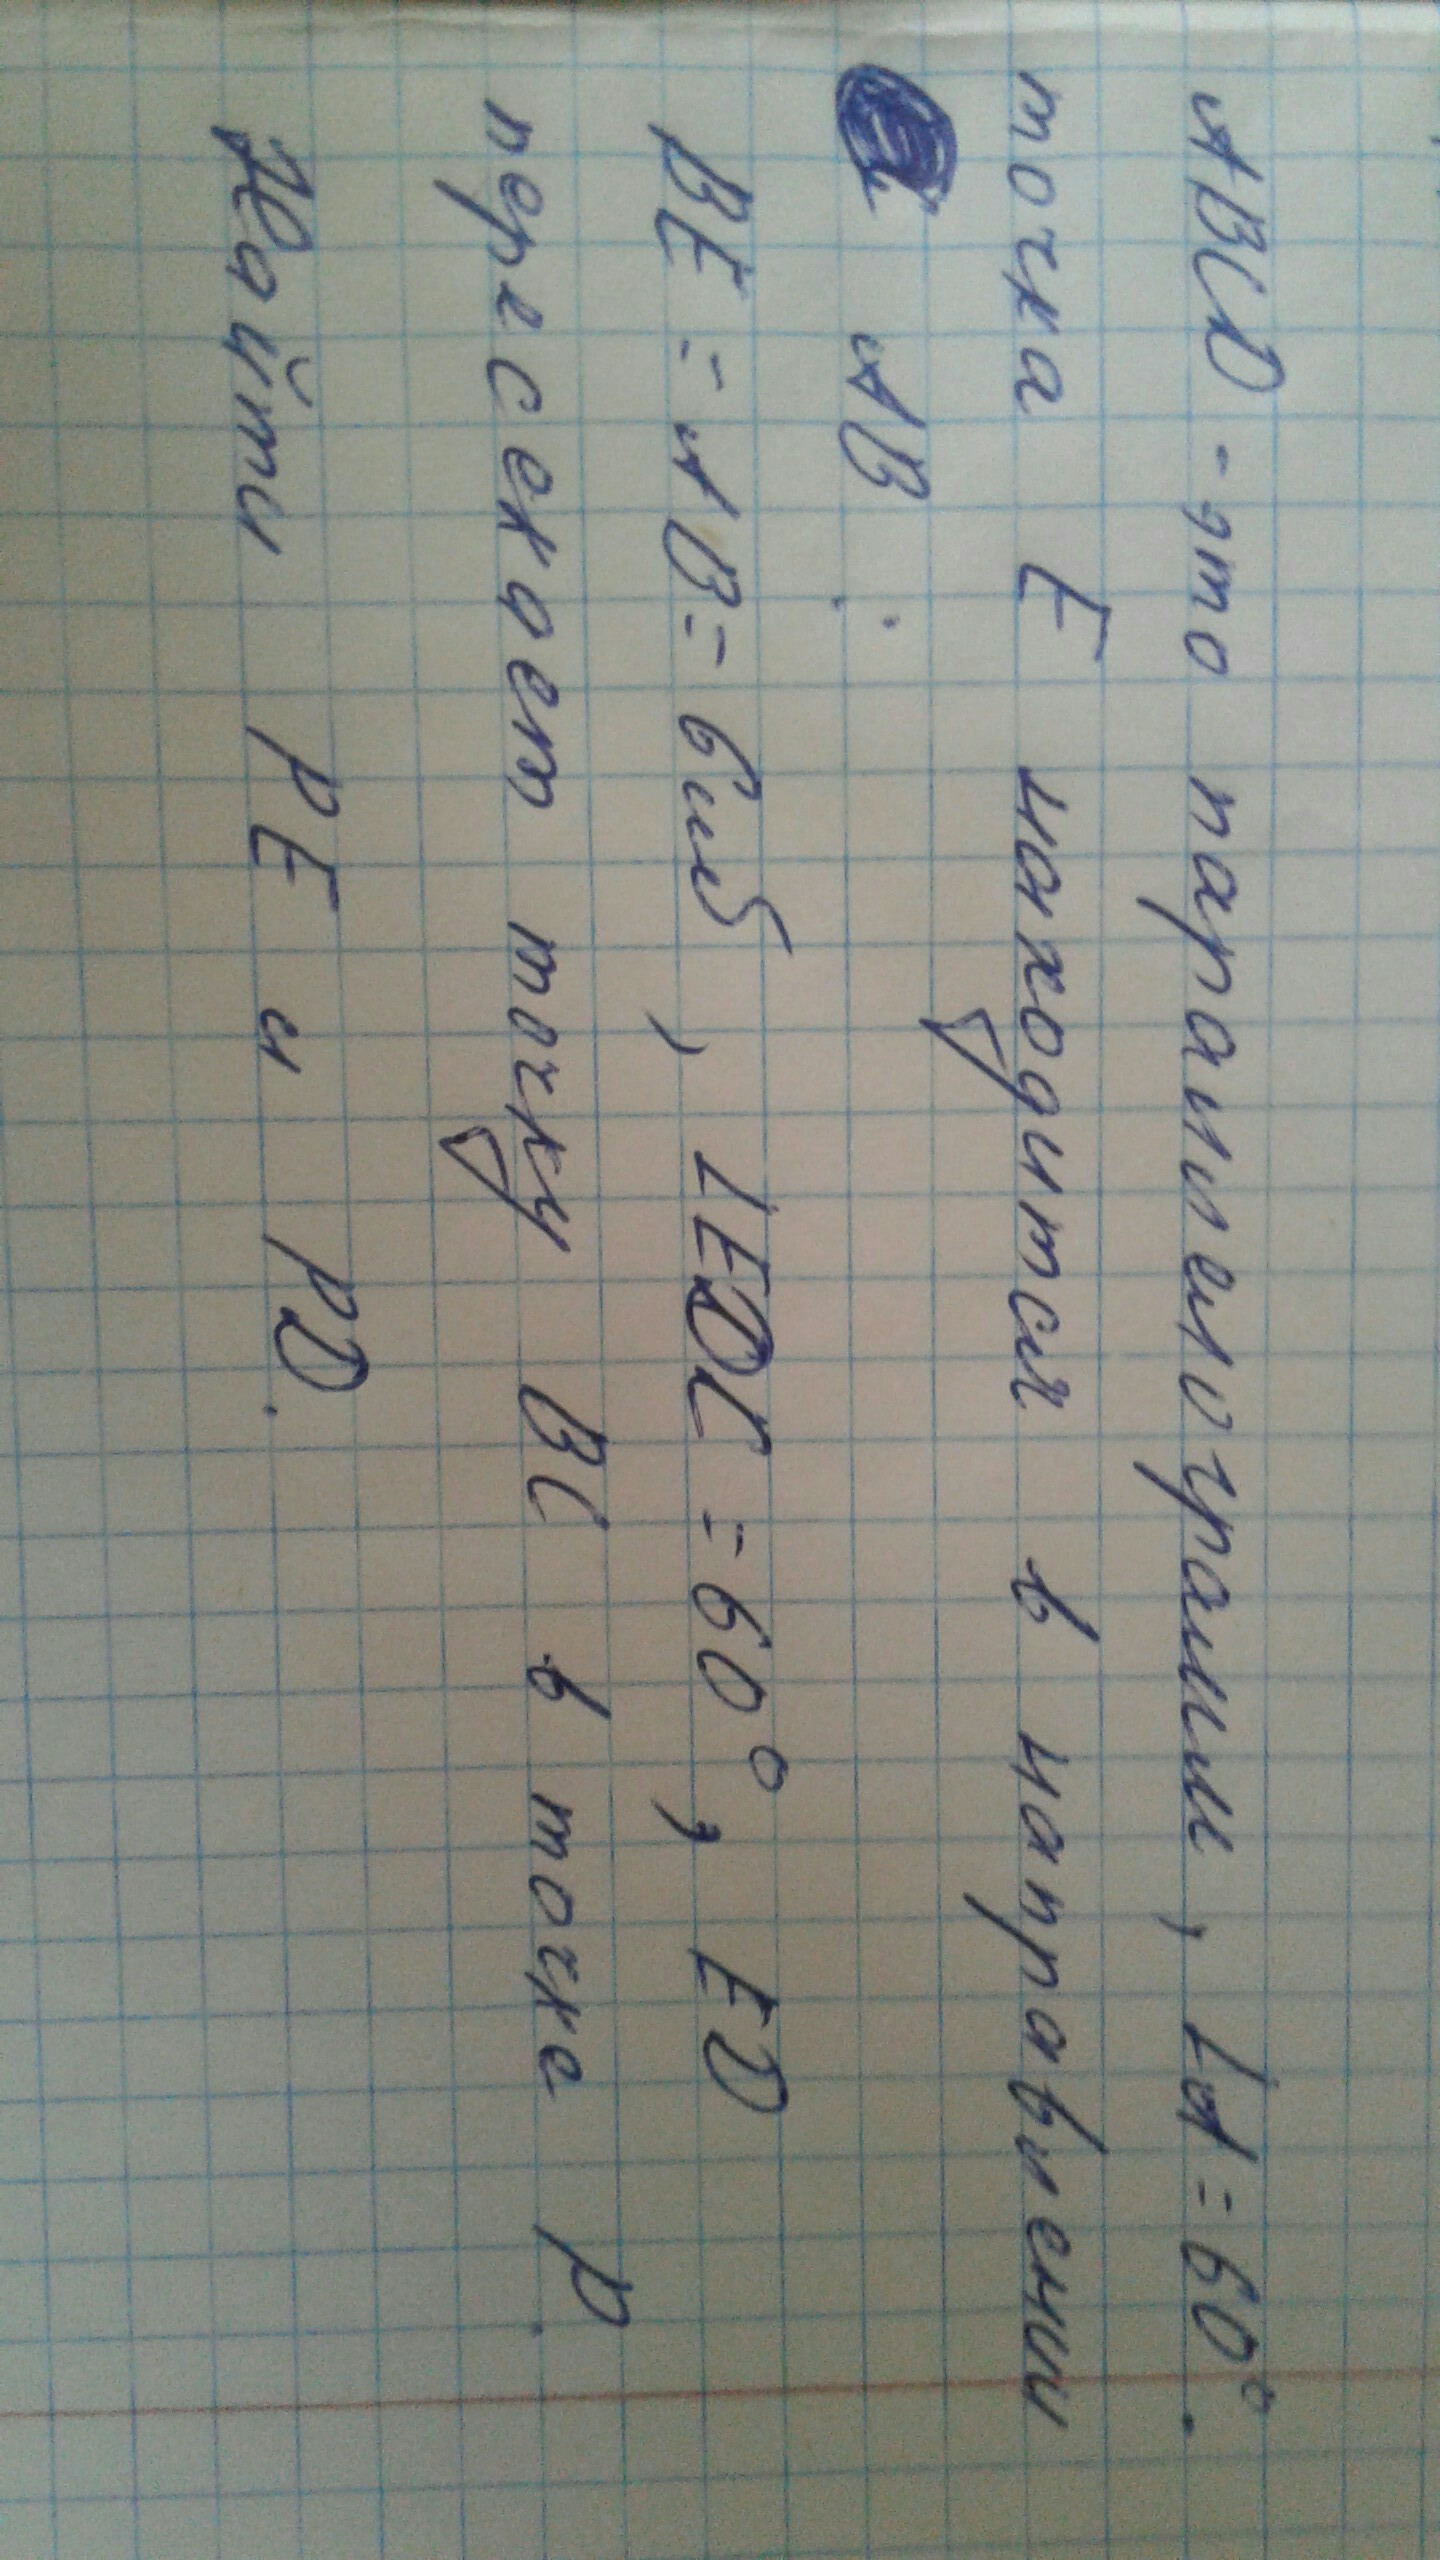 ABCD - это параллелограмм, ∠A = 60°.
точка E находится в направлении
AB.
BE = AB = 6 см, ∠EDC = 60°, ED
пересекает точку BC в точке P.
Найти PE и PD.